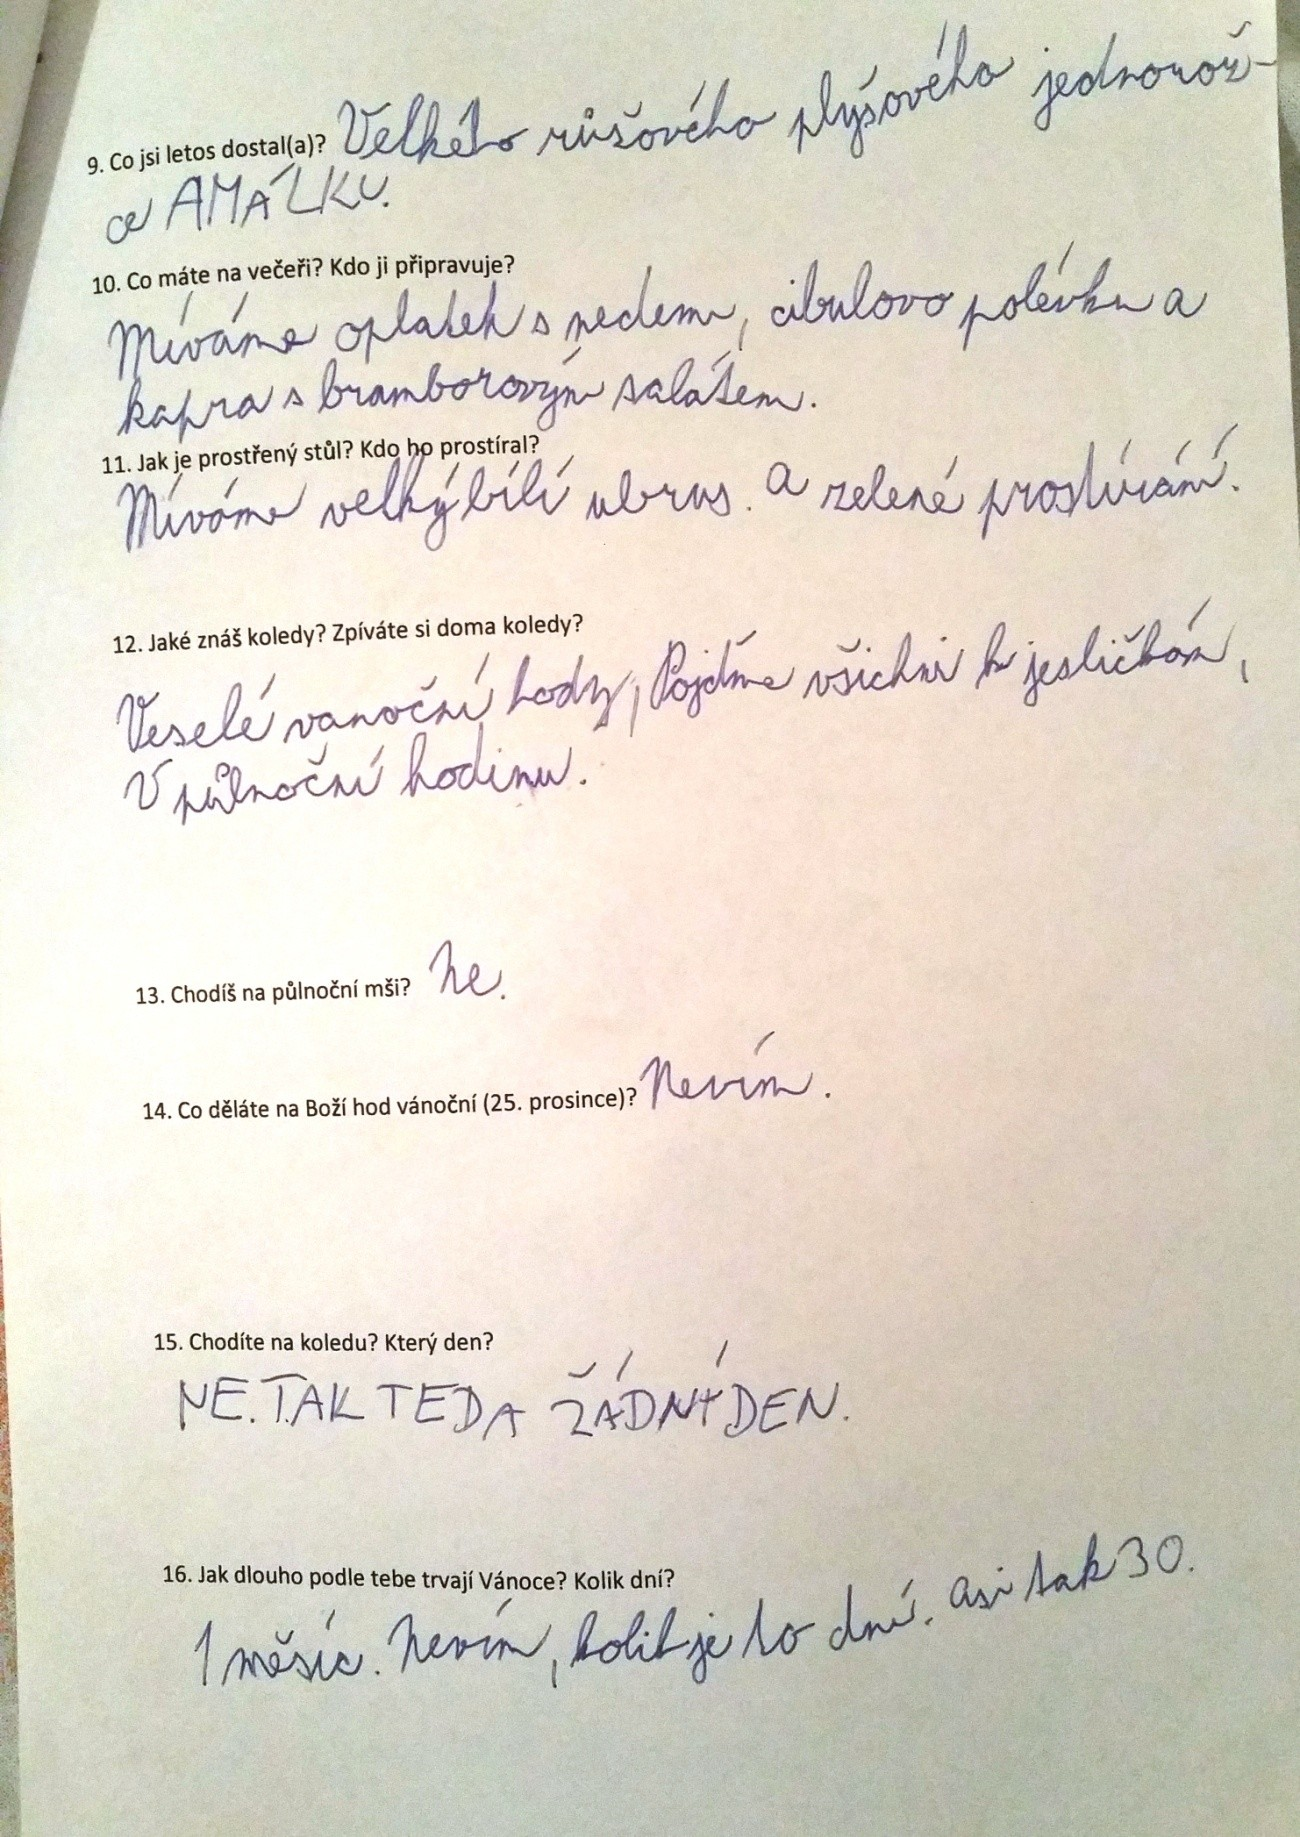 9. Co jsi letos dostal(a)? Velkého růšového plyšového jednorož-
ce AMÁLKU.
10. Co máte na večeři? Kdo ji připravuje?
Míváme oplatek s medem, cibulovo polévku a
kapra s bramborovým salátem.
11. Jak je prostřený stůl? Kdo ho prostíral?
Míváme velký bílí ubrus. a zelené prostírání.
12. Jaké znáš koledy? Zpíváte si doma koledy?
Veselé vanoční hody, Pojďme všichni k jesličkám,
V půlnoční hodinu.
13. Chodíš na půlnoční mši? Ne.
14. Co děláte na Boží hod vánoční (25. prosince)? Nevím.
15. Chodíte na koledu? Který den?
NE. TAK TEDA ŽÁDNÝ DEN.
16. Jak dlouho podle tebe trvají Vánoce? Kolik dní?
1 měsíc. Nevím, kolik je to dní. asi tak 30.